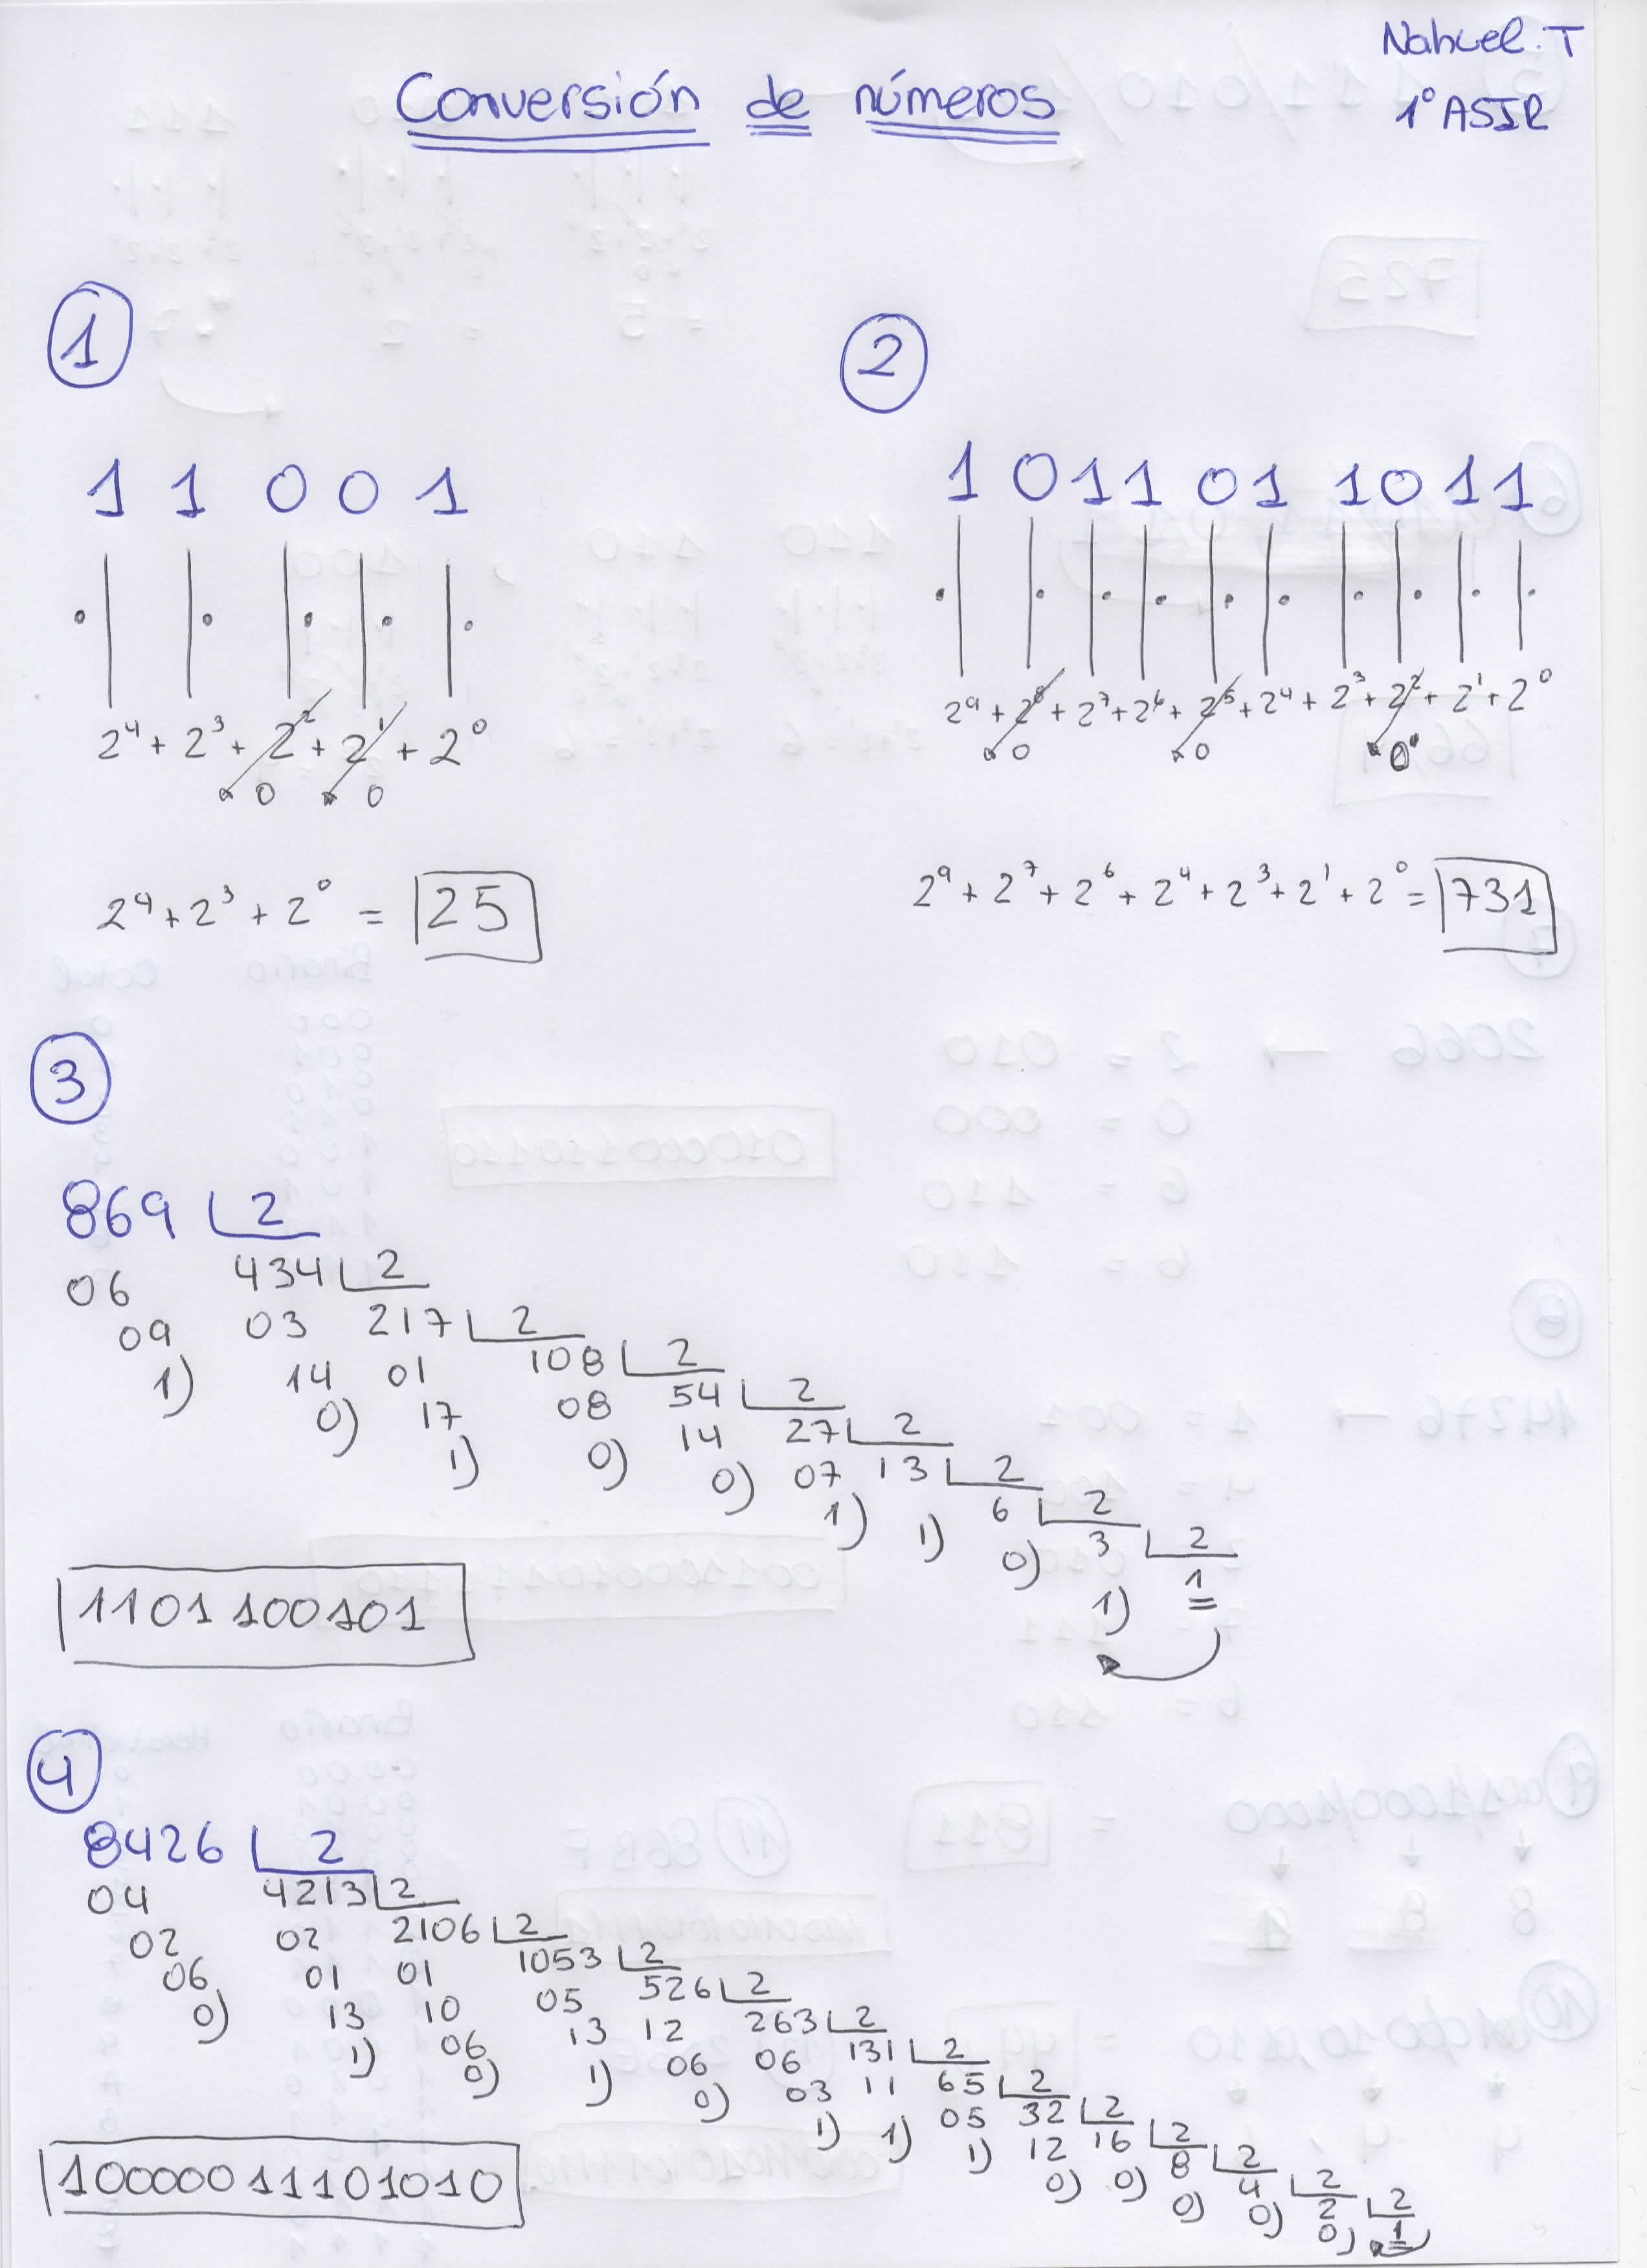 Nahuel. T
1º ASIR
Conversión de números
1
1 1 0 0 1
2⁴ + 2³ + 2² + 2¹ + 2⁰
0 0
2⁴ + 2³ + 2⁰ = 25
2
1 0 1 1 0 1 1 0 1 1
2⁹ + 2⁸ + 2⁷ + 2⁶ + 2⁵ + 2⁴ + 2³ + 2² + 2¹ + 2⁰
0 0 0
2⁹ + 2⁷ + 2⁶ + 2⁴ + 2³ + 2¹ + 2⁰ = 731
3
869 2
06 434 2
09 03 217 2
1) 14 01 108 2
0) 17 08 54 2
1) 0) 14 27 2
0) 07 13 2
1) 1) 6 2
0) 3 2
1) 1
1101100101
4
8426 2
04 4213 2
02 02 2106 2
06 01 01 1053 2
0) 13 10 05 526 2
1) 06 13 12 263 2
0) 1) 06 06 131 2
0) 03 11 65 2
1) 1) 05 32 2
1) 12 16 2
0) 0) 8 2
0) 4 2
0) 2 2
0) 1
10000011101010